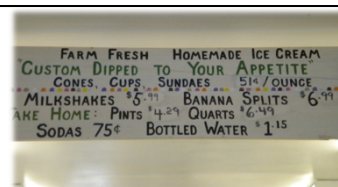 FARM FRESH HOMEMADE ICE CREAM
"CUSTOM DIPPED TO YOUR APPETITE"
CONES, CUPS, SUNDAES 51¢/OUNCE
MILKSHAKES $5.99 BANANA SPLITS $6.99
TAKE HOME: PINTS $4.29 QUARTS $6.49
SODAS 75¢ BOTTLED WATER $1.15